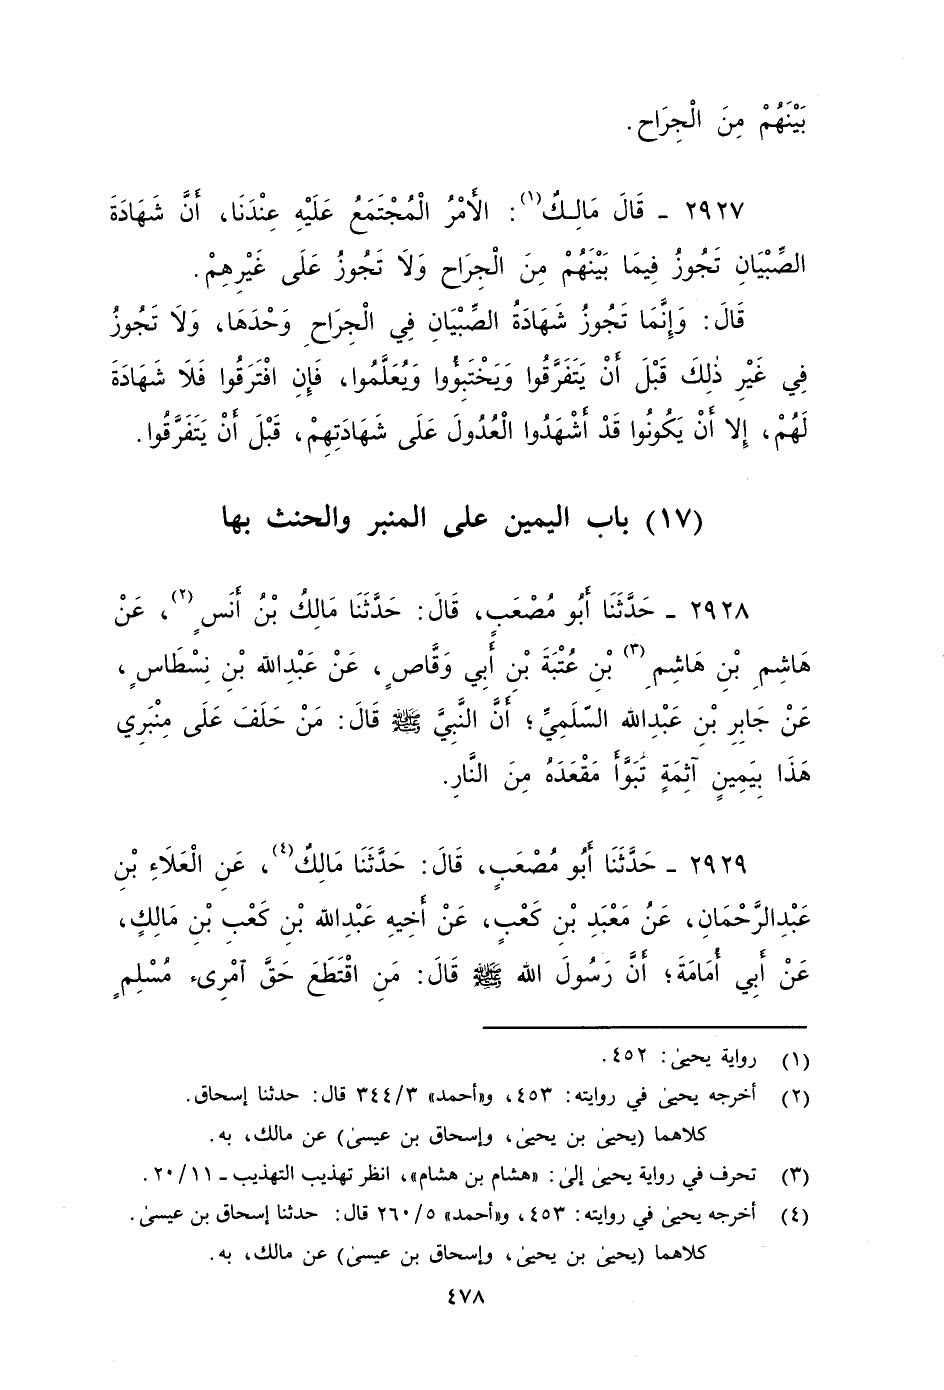 بَيْنَهُمْ مِنَ الْجِرَاحِ.
٢٩٢٧ ـ قَالَ مَالِكٌ(١): الأَمْرُ الْمُجْتَمَعُ عَلَيْهِ عِنْدَنَا، أَنَّ شَهَادَةَ
الصِّبْيَانِ تَجُوزُ فِيمَا بَيْنَهُمْ مِنَ الْجِرَاحِ وَلَا تَجُوزُ عَلَى غَيْرِهِمْ.
قَالَ: وَإِنَّمَا تَجُوزُ شَهَادَةُ الصِّبْيَانِ فِي الْجِرَاحِ وَحْدَهَا، وَلَا تَجُوزُ
فِي غَيْرِ ذٰلِكَ قَبْلَ أَنْ يَتَفَرَّقُوا وَيَخْتَبِؤُوا وَيُعَلَّمُوا، فَإِنِ افْتَرَقُوا فَلَا شَهَادَةَ
لَهُمْ، إِلا أَنْ يَكُونُوا قَدْ أَشْهَدُوا الْعُدُولَ عَلَى شَهَادَتِهِمْ، قَبْلَ أَنْ يَتَفَرَّقُوا.
(١٧) باب اليمين على المنبر والحنث بها
٢٩٢٨ ـ حَدَّثَنَا أَبُو مُصْعَبٍ، قَالَ: حَدَّثَنَا مَالِكُ بْنُ أَنَسٍ(٢)، عَنْ
هَاشِمِ بْنِ هَاشِمِ(٣) بْنِ عُتْبَةَ بْنِ أَبِي وَقَّاصٍ، عَنْ عَبْدِالله بْنِ نِسْطَاسٍ،
عَنْ جَابِرِ بْنِ عَبْدِالله السّلَمِيِّ؛ أَنَّ النَّبِيَّ ﷺ قَالَ: مَنْ حَلَفَ عَلَى مِنْبَرِي
هَذَا بِيَمِينٍ آثِمَةٍ تَبَوَّأَ مَقْعَدَهُ مِنَ النَّارِ.
٢٩٢٩ ـ حَدَّثَنَا أَبُو مُصْعَبٍ، قَالَ: حَدَّثَنَا مَالِكٌ(٤)، عَنِ الْعَلَاءِ بْنِ
عَبْدِالرَّحْمَانِ، عَنْ مَعْبَدِ بْنِ كَعْبٍ، عَنْ أَخِيهِ عَبْدِالله بْنِ كَعْبِ بْنِ مَالِكٍ،
عَنْ أَبِي أُمَامَةَ؛ أَنَّ رَسُولَ الله ﷺ قَالَ: مَنِ اقْتَطَعَ حَقَّ آمْرِىءٍ مُسْلِمٍ
(١) رواية يحيىٰ: ٤٥٢.
(٢) أخرجه يحيىٰ في روايته: ٤٥٣، و«أحمد» ٣٤٤/٣ قال: حدثنا إسحاق.
كلاهما (يحيىٰ بن يحيىٰ، وإسحاق بن عيسىٰ) عن مالك، به.
(٣) تحرف في رواية يحيىٰ إلىٰ: «هشام بن هشام»، انظر تهذيب التهذيب ـ ٢٠/١١.
(٤) أخرجه يحيىٰ في روايته: ٤٥٣، و«أحمد» ٢٦٠/٥ قال: حدثنا إسحاق بن عيسىٰ.
كلاهما (يحيىٰ بن يحيىٰ، وإسحاق بن عيسىٰ) عن مالك، به.
٤٧٨